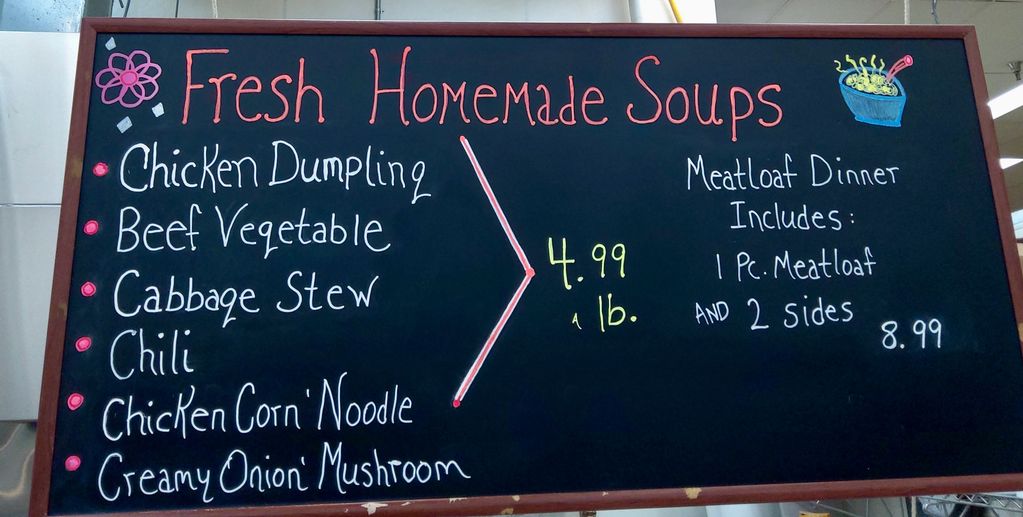 Fresh Homemade Soups
Chicken Dumpling
Beef Vegetable
Cabbage Stew
Chili
Chicken Corn' Noodle
Creamy Onion' Mushroom
4.99
A lb.
Meatloaf Dinner
Includes:
1 Pc. Meatloaf
AND 2 sides
8.99